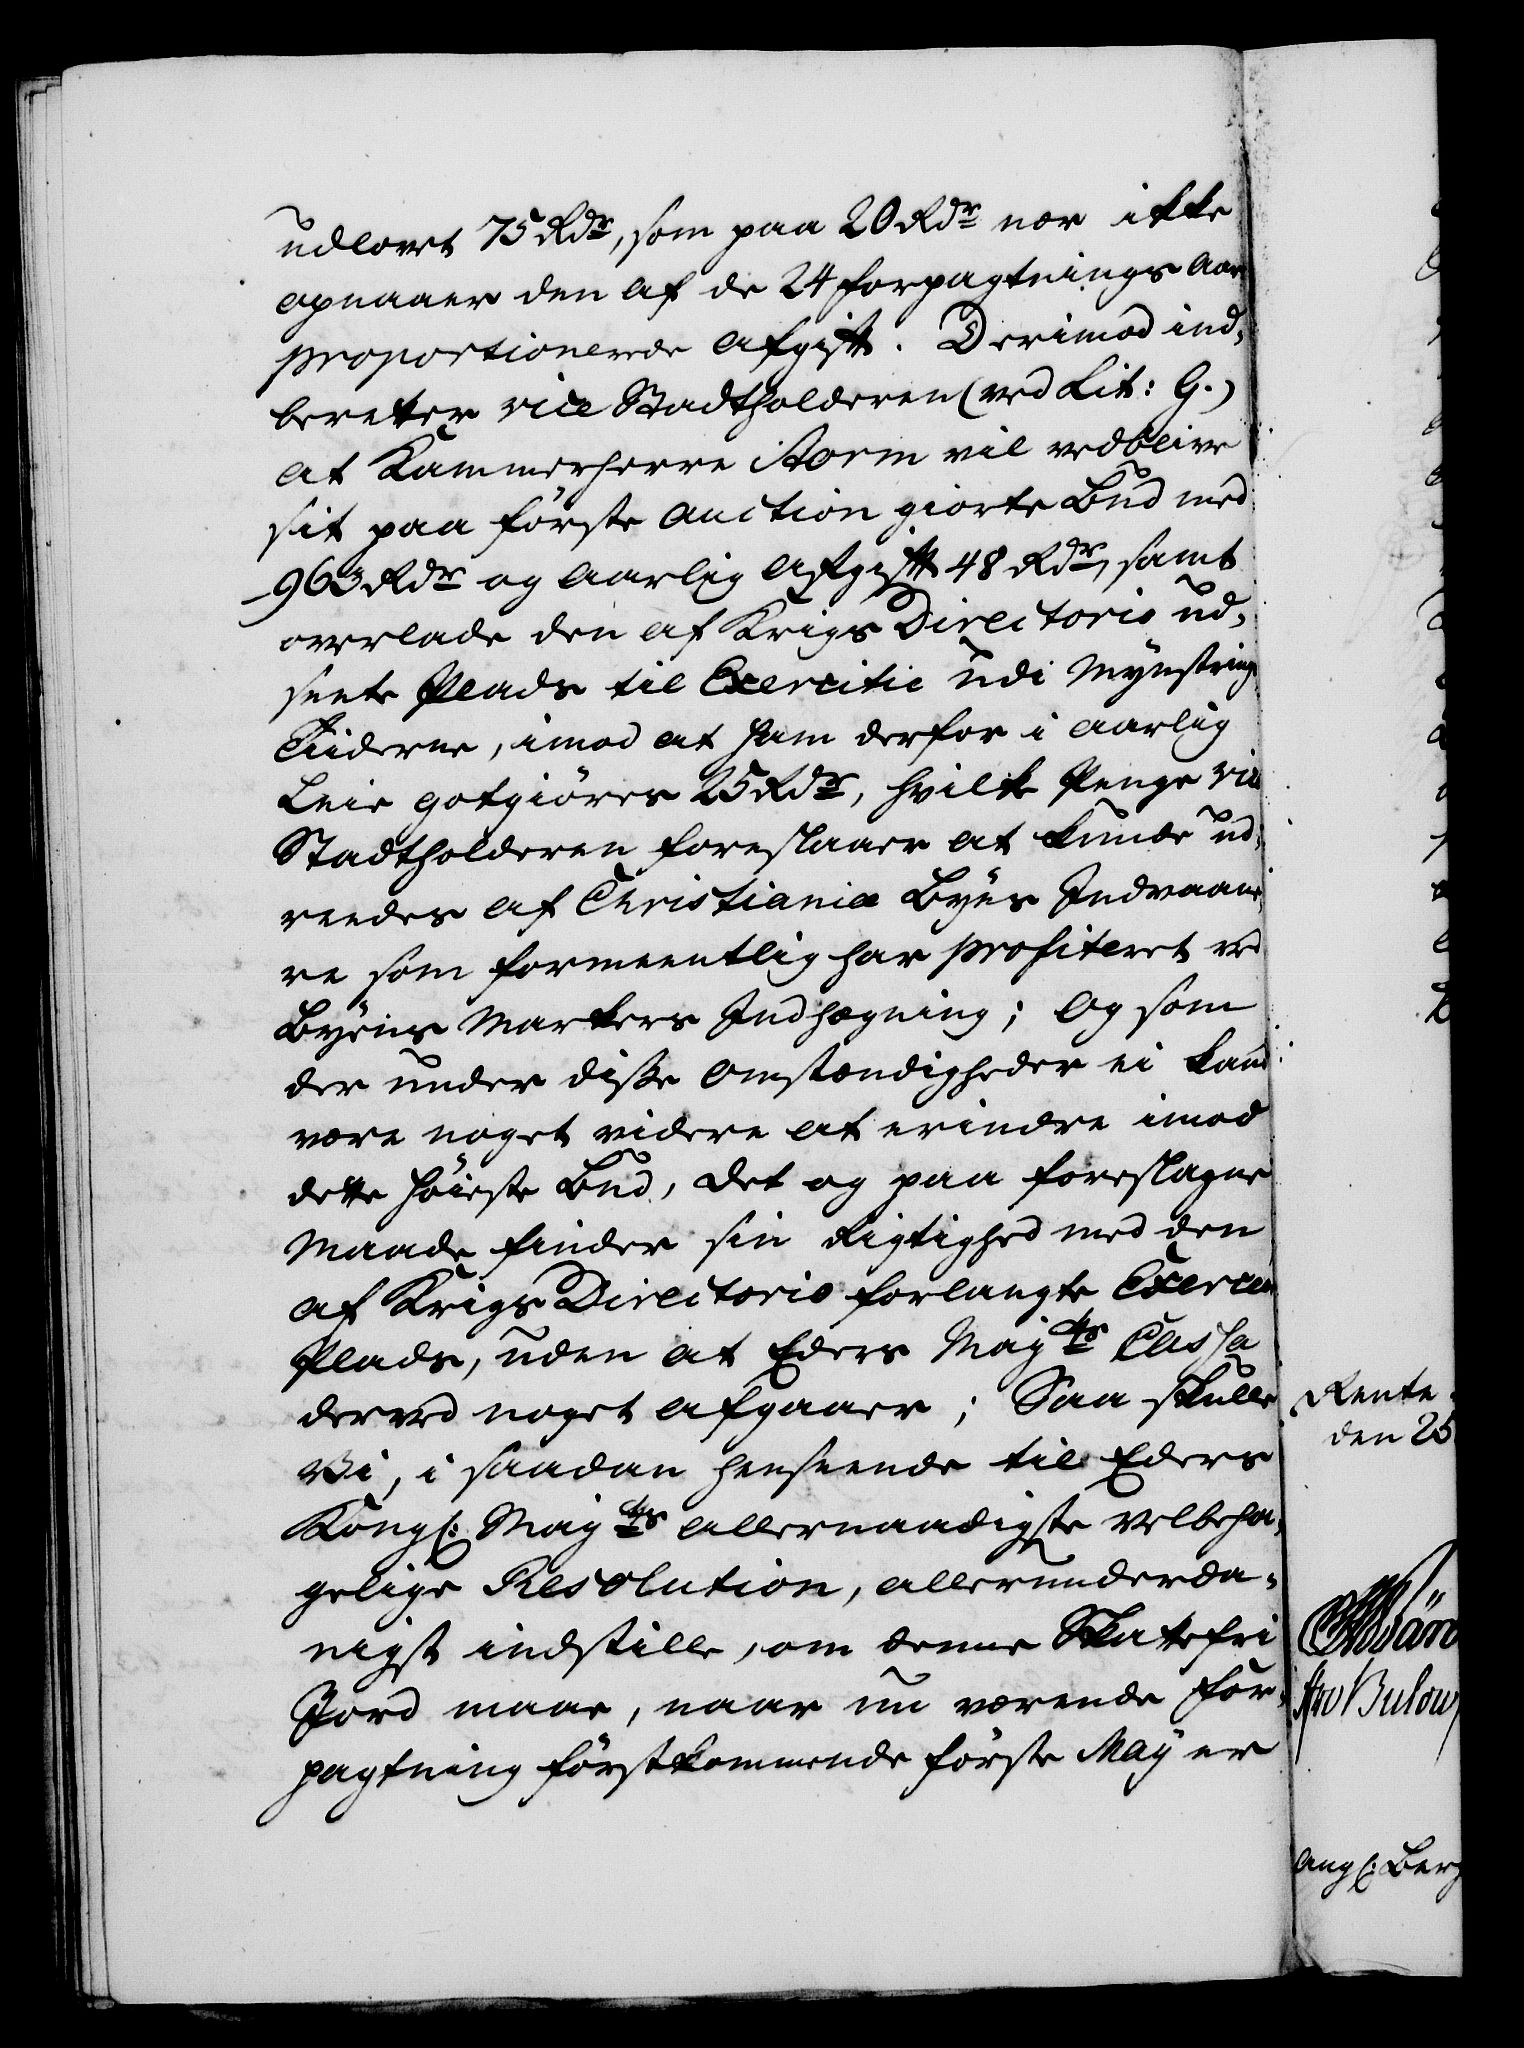 udlovet 75 Rdr, som paa 20 Rdr nær ikke
opnaaer den af de 24 forpagtnings Aar
proportionerede Afgift. Derimod ind-
beretter vice Stadtholderen (ved Lit: G.)
at Kammerherre Storm vil vedblive
sit paa første Auction giorte Bud med
963 Rdr og aarlig Afgift 48 Rdr, samt
overlade den af Krigs Directorio ud-
seete Plads til Exercitie udi Mynstrings
Tiiderne, imod at ham derfor i aarlig
Leie gotgiöres 25 Rdr, hvilke Penge vice
Stadtholderen foreslaaer at kunde ud-
reedes af Christiania Byes Indvaane-
re som formeentlig har profiteret ved
Byens Markers Indhægning; Og som
der under disse Omstændigheder ei kand
være noget videre at erindre imod
dette höieste Bud, det og paa foreslagne
Maade finder sin Rigtighed med den
af Krigs Directorio forlangte Exerceer
Plads, uden at Eders Mayts Cassa
derved noget afgaaer; Saa skulle
Vi, i saadan henseende til Eders
Kongl: Mayts allernaadigste velbeha-
gelige Resolution, allerunderda-
nigst indstille, om denne Skattefri
Jord maae, naar nu værende For-
pagtning förstkommende förste May er
Rente
den 25
Bulow
angl: Berg